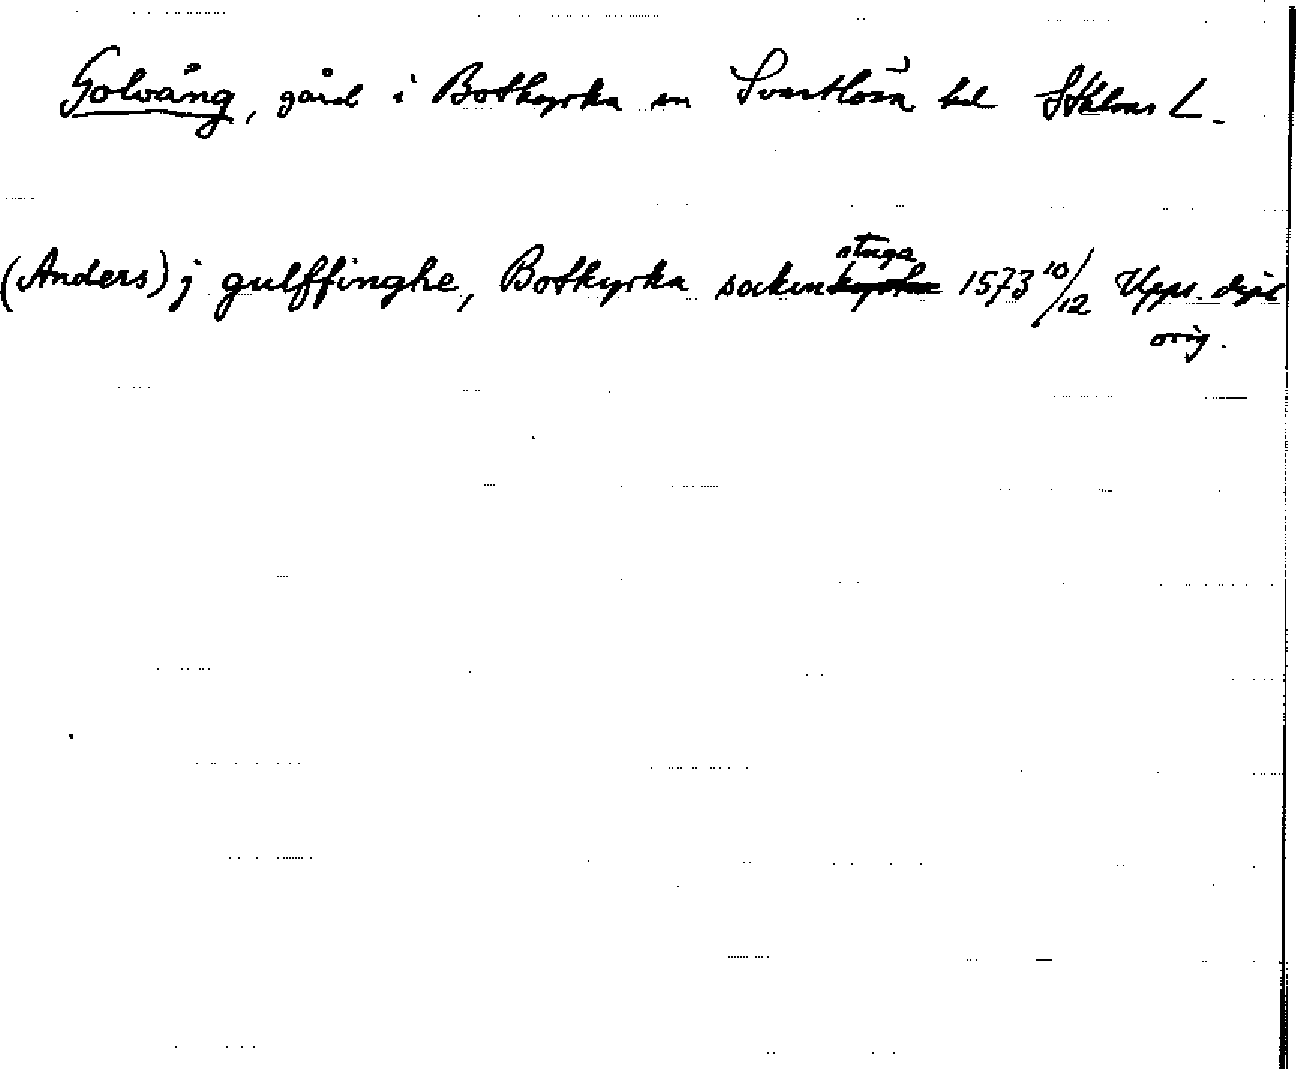 Golvång, gård i Botkyrka sn Svartlösa hd Sthlms L.
(Anders) j gulffinghe, Botkyrka sockenstuga 1573 10/12 Upps. dipl
orig.